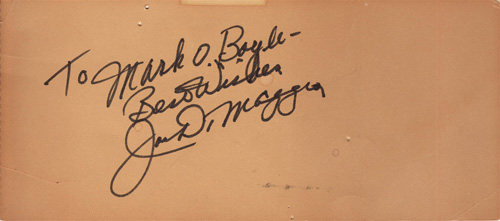 To Mark O. Boyle -
Best Wishes
Joe DiMaggio